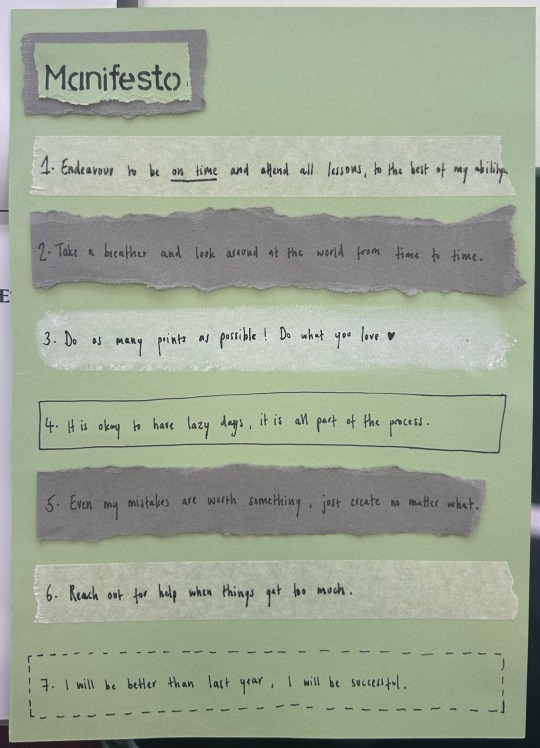 Manifesto
1. Endeavour to be on time and attend all lessons, to the best of my ability.
2. Take a breather and look around at the world from time to time.
3. Do as many prints as possible! Do what you love ♥
4. It is okay to have lazy days, it is all part of the process.
5. Even my mistakes are worth something, just create no matter what.
6. Reach out for help when things get too much.
7. I will be better than last year, I will be successful.
E